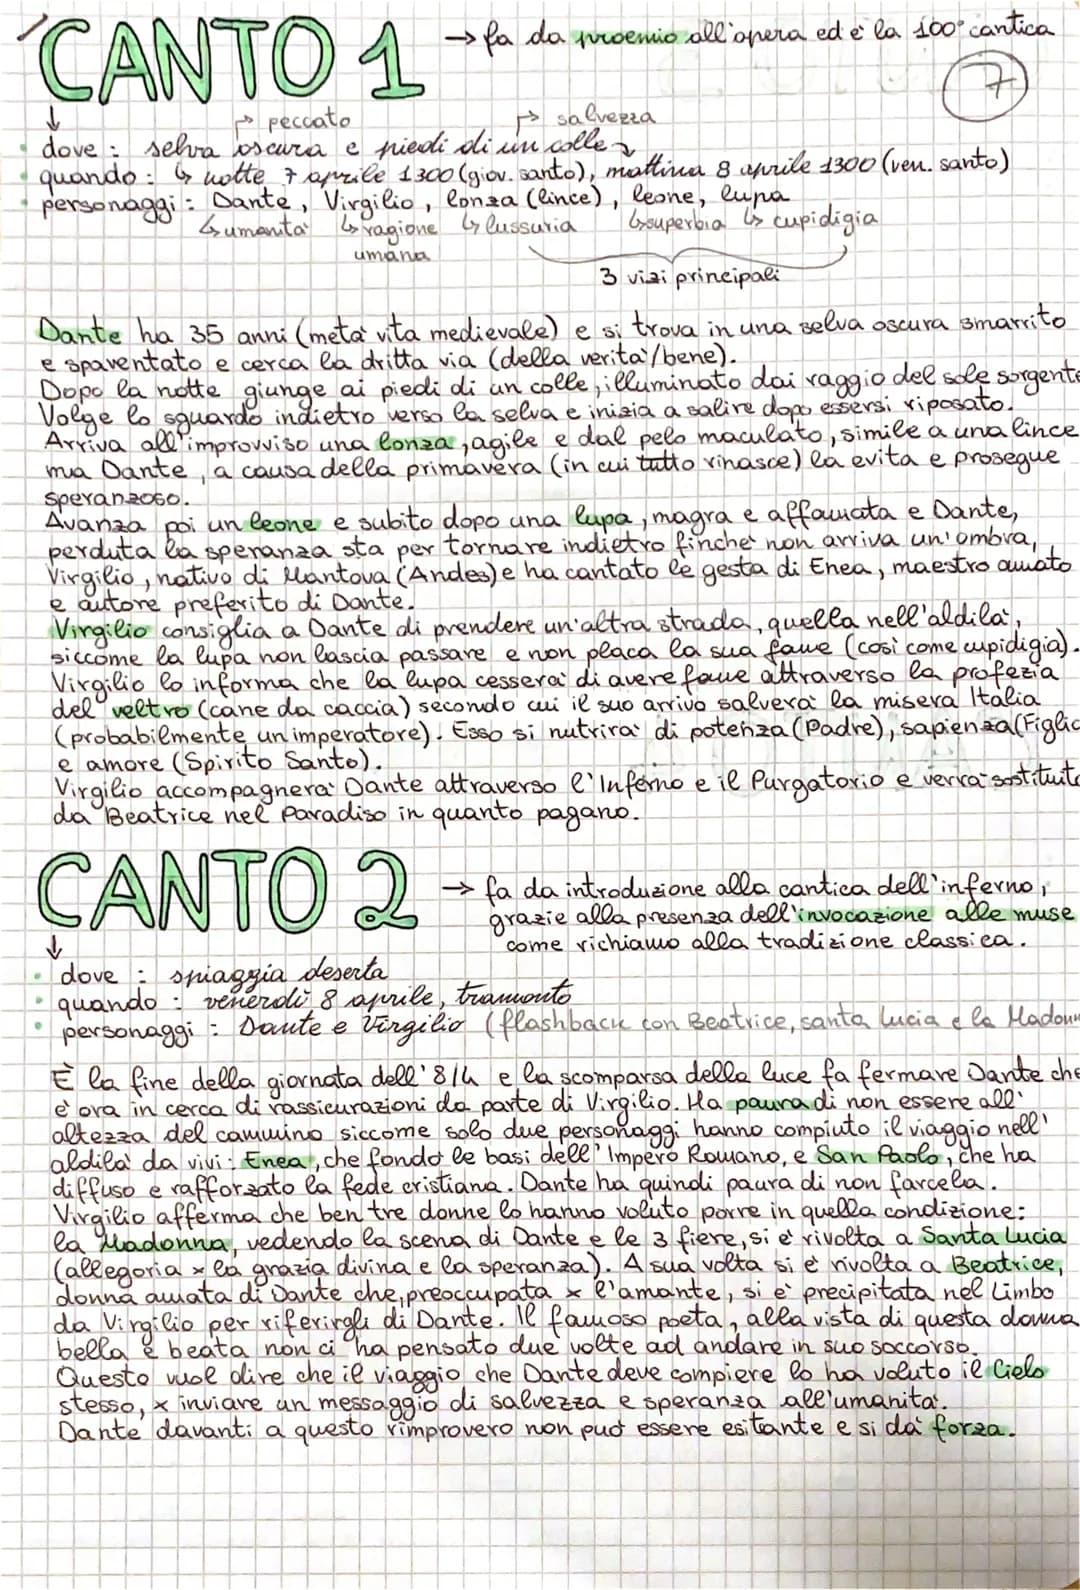 CANTO 1 → fa da proemio all'opera ed è la 100° cantica
7
↓ ↱ peccato ↱ salvezza
• dove : selva oscura e piedi di un colle
• quando : ↳ notte 7 aprile 1300 (giov. santo), mattina 8 aprile 1300 (ven. santo)
• personaggi : Dante, Virgilio, lonza (lince), leone, lupa
↳ umanità ↳ ragione ↳ lussuria ↳ superbia ↳ cupidigia
umana
3 vizi principali
Dante ha 35 anni (metà vita medievale) e si trova in una selva oscura smarrito
e spaventato e cerca la dritta via (della verità/bene).
Dopo la notte giunge ai piedi di un colle, illuminato dai raggio del sole sorgente
Volge lo sguardo indietro verso la selva e inizia a salire dopo essersi riposato.
Arriva all'improvviso una lonza, agile e dal pelo maculato, simile a una lince
ma Dante, a causa della primavera (in cui tutto rinasce) la evita e prosegue
speranzoso.
Avanza poi un leone e subito dopo una lupa, magra e affamata e Dante,
perduta la speranza sta per tornare indietro finchè non arriva un'ombra,
Virgilio, nativo di Mantova (Andes) e ha cantato le gesta di Enea, maestro amato
e autore preferito di Dante.
Virgilio consiglia a Dante di prendere un'altra strada, quella nell'aldilà,
siccome la lupa non lascia passare e non placa la sua fame (così come cupidigia).
Virgilio lo informa che la lupa cesserà di avere fame attraverso la profezia
del veltro (cane da caccia) secondo cui il suo arrivo salverà la misera Italia
(probabilmente un imperatore). Esso si nutrirà di potenza (Padre), sapienza (Figlio
e amore (Spirito Santo).
Virgilio accompagnerà Dante attraverso l'Inferno e il Purgatorio e verrà sostituito
da Beatrice nel Paradiso in quanto pagano.
CANTO 2 → fa da introduzione alla cantica dell'inferno,
grazie alla presenza dell'invocazione alle muse
come richiamo alla tradizione classica.
↓
• dove : spiaggia deserta
• quando : venerdì 8 aprile, tramonto
• personaggi : Dante e Virgilio (flashback con Beatrice, santa Lucia e la Madonn
È la fine della giornata dell'8/4 e la scomparsa della luce fa fermare Dante che
è ora in cerca di rassicurazioni da parte di Virgilio. Ha paura di non essere all'
altezza del cammino siccome solo due personaggi hanno compiuto il viaggio nell'
aldilà da vivi: Enea, che fondò le basi dell'Impero Romano, e San Paolo, che ha
diffuso e rafforzato la fede cristiana. Dante ha quindi paura di non farcela.
Virgilio afferma che ben tre donne lo hanno voluto porre in quella condizione:
la Madonna, vedendo la scena di Dante e le 3 fiere, si è rivolta a Santa Lucia
(allegoria x la grazia divina e la speranza). A sua volta si è rivolta a Beatrice,
donna amata di Dante che, preoccupata x l'amante, si è precipitata nel Limbo
da Virgilio per riferirgli di Dante. Il famoso poeta, alla vista di questa donna
bella e beata non ci ha pensato due volte ad andare in suo soccorso.
Questo vuol dire che il viaggio che Dante deve compiere lo ha voluto il Cielo
stesso, x inviare un messaggio di salvezza e speranza all'umanità.
Dante davanti a questo rimprovero non può essere esitante e si dà forza.